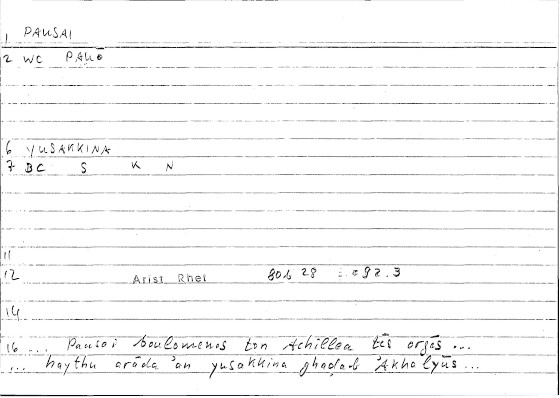 1 PAUSAI
2 WC PAUŌ
6 YUSAKKINA
7 BC S K N
11
12 Arist Rhet 80b 28 82.3
14
16 ... Pausai boulomenos ton Achillea tēs orgēs ...
... haythu arāda 'an yusakkina ghadab 'Akhalyūs ...